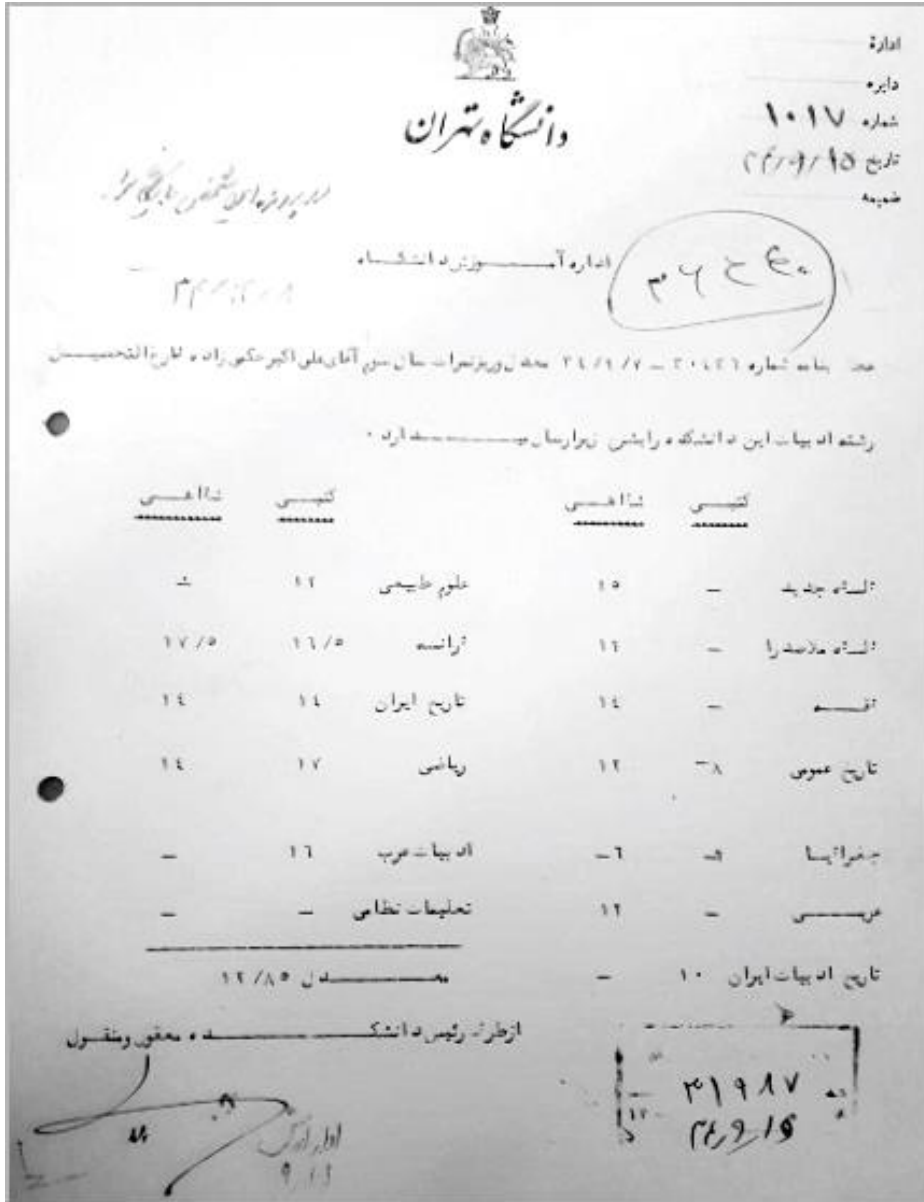 ادارهٔ
دایره
شماره ۱۰۱۷
تاریخ ۲۴/۹/۱۵
ضمیمه
دانشگاه تهران
اداره آمــوزش دانشگــاه
بنامه شماره ۲۰۴۲۶ – ۲۴/۹/۷ معدل وریزنمرات سال سوم آقای علی اکبر حکمی زاده فارغ التحصیــل
رشته ادبیات این دانشکده رابشرح زیرارسال میــــدارد ۰
کتبــی شفاهــی کتبــی شفاهــی
فلسفه جدید – ۱۵ علوم طبیعی ۱۲
فلسفه ملاصدرا – ۱۲ فرانسه ۱۶/۵ ۱۷/۵
فقــه – ۱۴ تاریخ ایران ۱۴ ۱۴
تاریخ عمومی ۸– ۱۲ ریاضی ۱۷ ۱۴
جغرافیــا ۶– ادبیات عرب ۱۶ –
عربــــی – ۱۲ تعلیمات نظامی – –
تاریخ ادبیات ایران ۱۰ – معــــــدل ۱۲/۸۵
ازطرف رئیس دانشکــــــده معقول ومنقــول
۳۱۹۸۷
۲۴/۹/۱۵